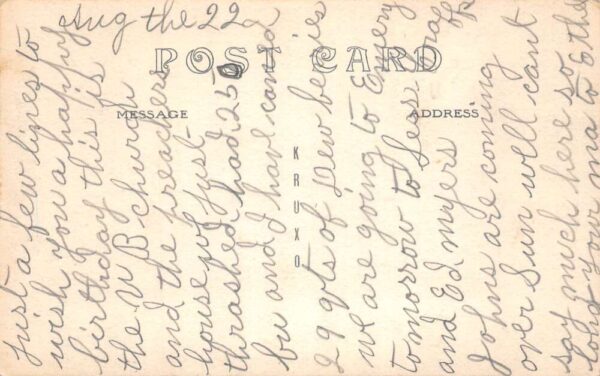 Aug the 22
POST CARD
MESSAGE
ADDRESS
KRUXO
just a few lines to
wish you a happy
birthday this is
the U B church
and the preachers
house we just
thrashed had 250
bu and I have canned
29 qts of Dew berries
we are going to Emery
tomorrow to Less
and Ed myers
Johns are coming
over Sun well cant
say much here so
long your ma to Ethe